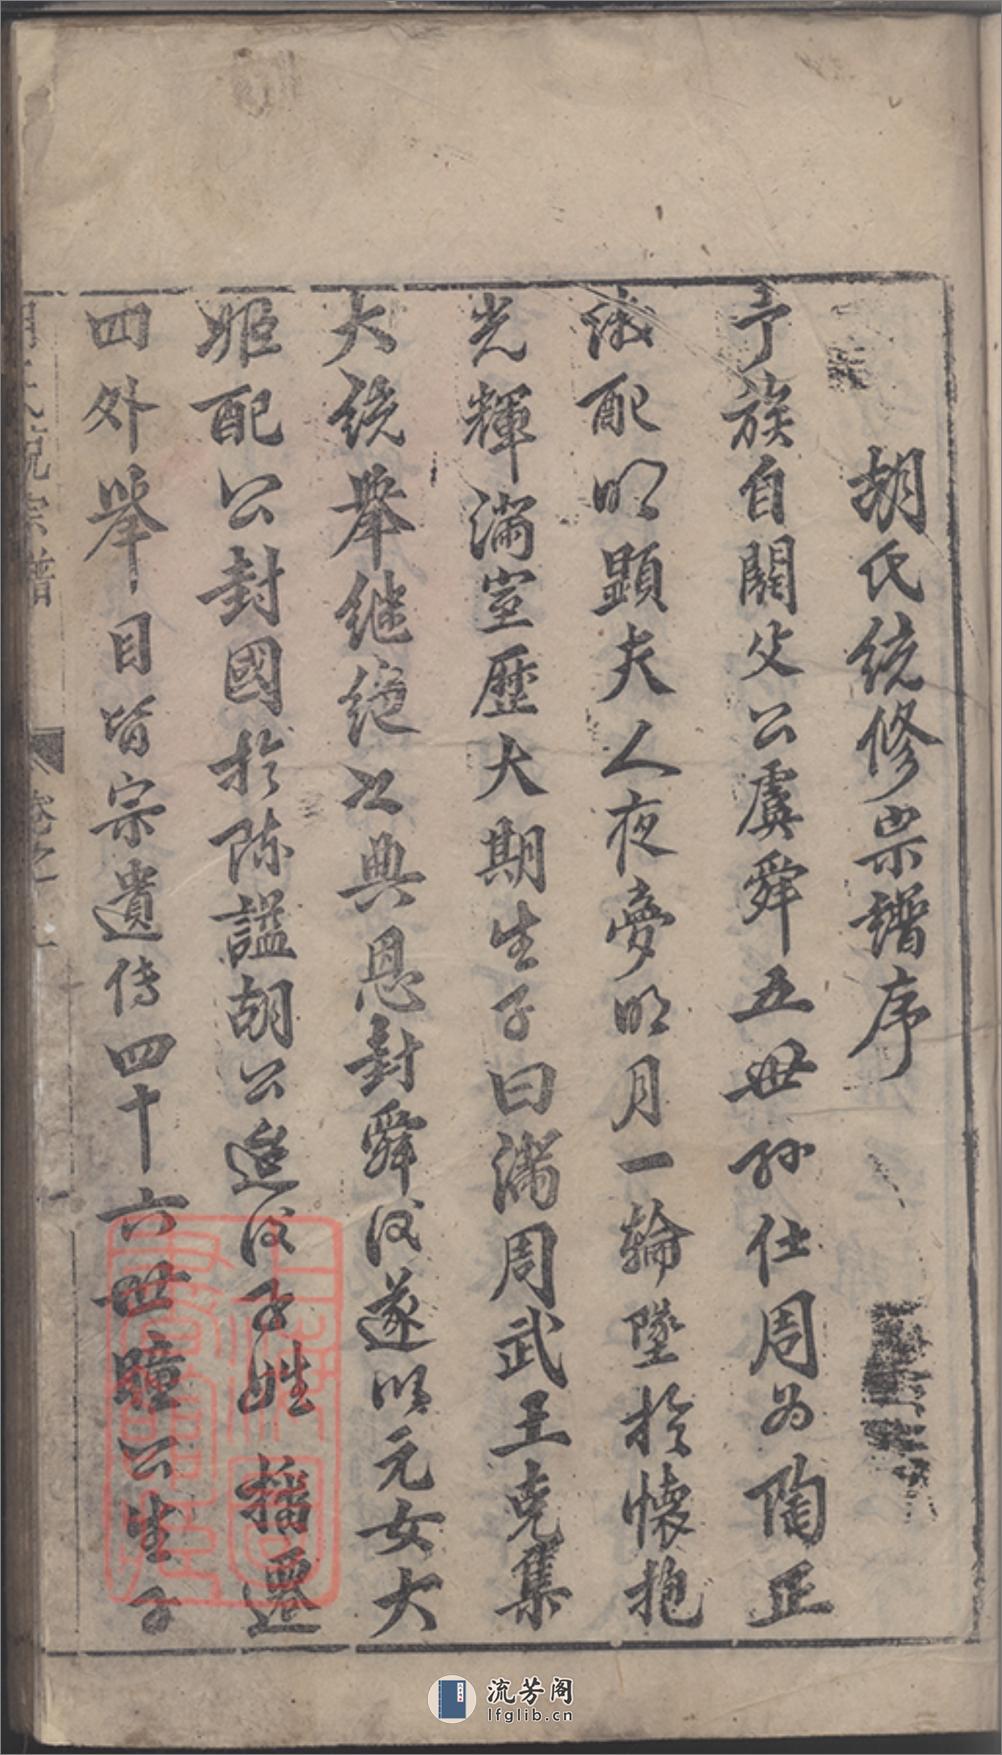 胡氏統修宗譜序
予族自閼父公虞舜五世孫仕周为陶正
繼配明顯夫人夜夢明月一輪墜於懷抱
光輝滿室歷大期生子曰滿周武王克集
大統舉继绝之典恩封舜後遂以元女大
姬配公封國於陈諡胡公迨後子姓播遷
四外举目皆宗遺传四十六世疃公生子
氏統宗譜
卷之一
一
流芳阁
lfglib.cn